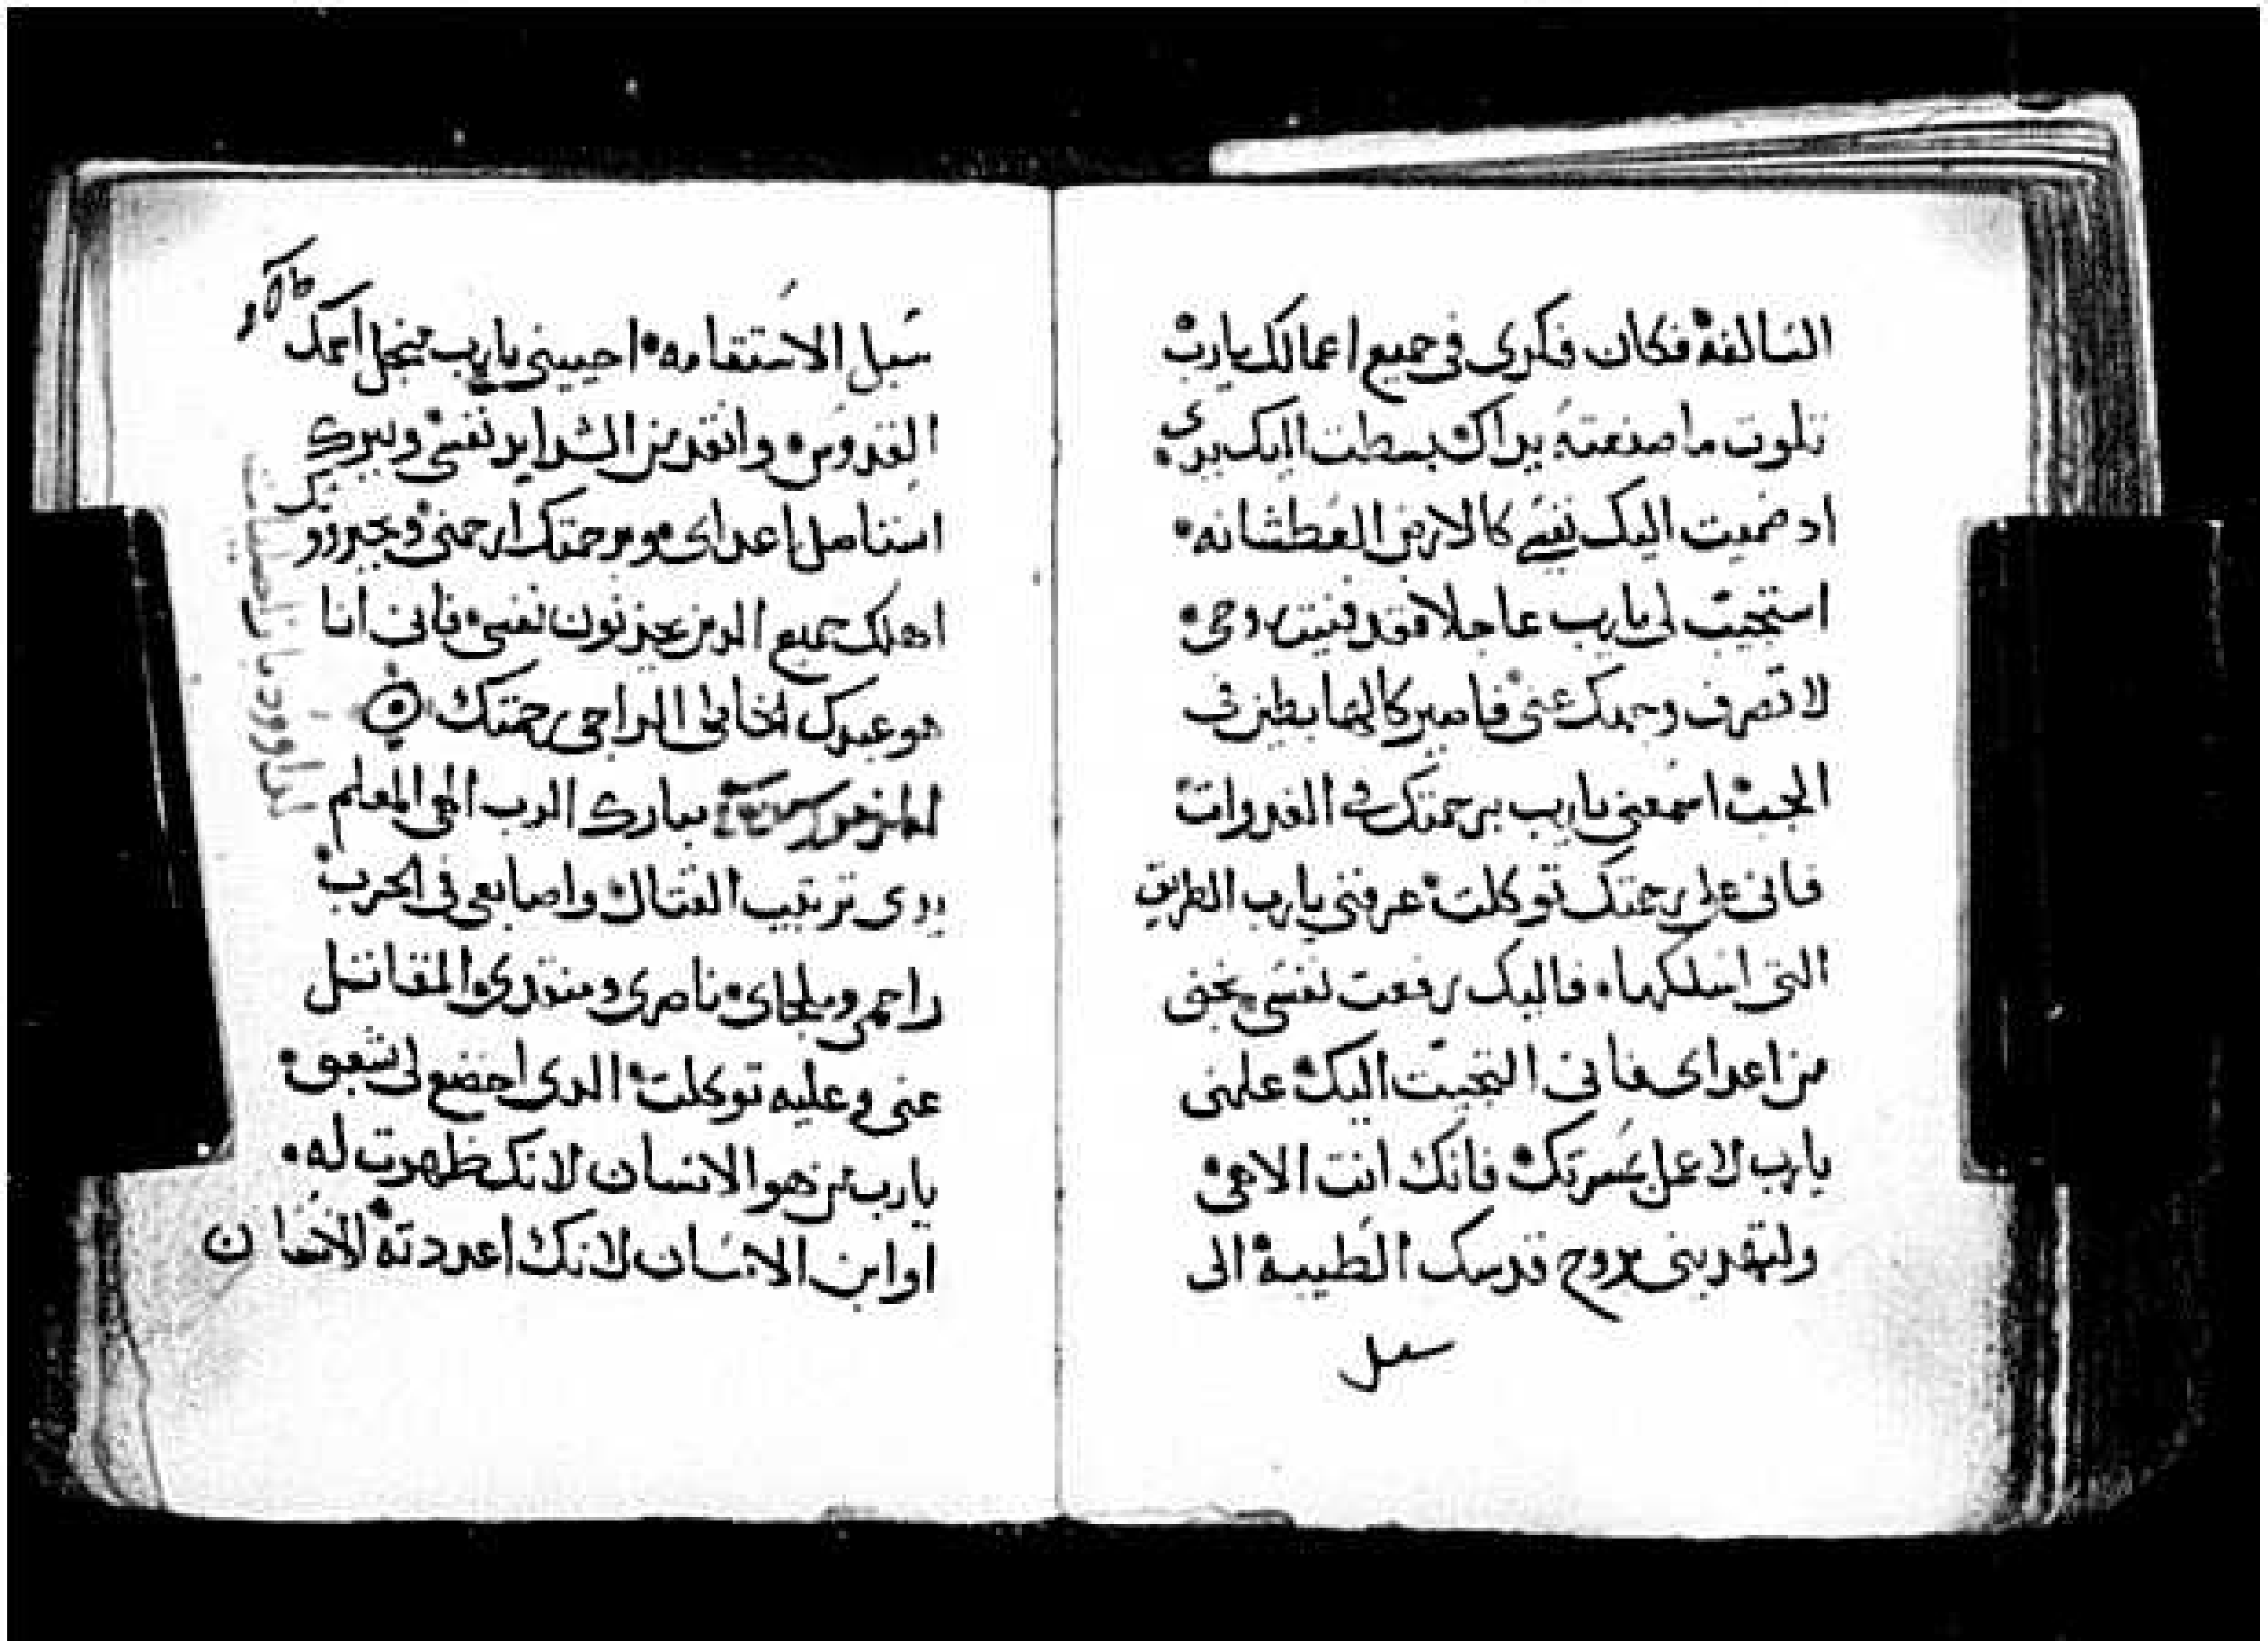 السالفة فكان فكرى فى جميع اعمالك يارب
تلوت ما صنعته يداك بسطت اليك يدى
اد ضميت اليك نفسى كالارض العطشانه
استجيب لى يارب عاجلا فقد فنيت روحى
لا تصرف وجهك عنى فاصير كالهابطين فى
الجب اسمعنى يارب برحمتك فى الغدوات
فانى على رحمتك توكلت عرفنى يارب الطريق
التى اسلكها فاليك رفعت نفسى نجنى
من اعداى فانى التجيت اليك علمنى
يارب لاعمل بمسرتك فانك انت الاهى
ولتهدينى روح قدسك الطيبة الى
سبل
سبل الاستقامه احيينى يارب منجل اسمك
القدوس وانقد من الشدايد نفسى وببرك
استاصل اعداى ومرحمتك ارحمنى
اهلك جميع الدين يحزنون نفسى فانى انا
هو عبدك الخاطى الراجى رحمتك
المزمور مبارك الرب الهى المعلم
يدى ترتيب القتال واصابعى فى الحرب
راحمى وملجاى ناصرى ومنقدى المقاتل
عنى وعليه توكلت الدى اخضع لى شعبى
يارب من هو الانسان لانك ظهرت له
او ابن الانسان لانك اعددته الانسان